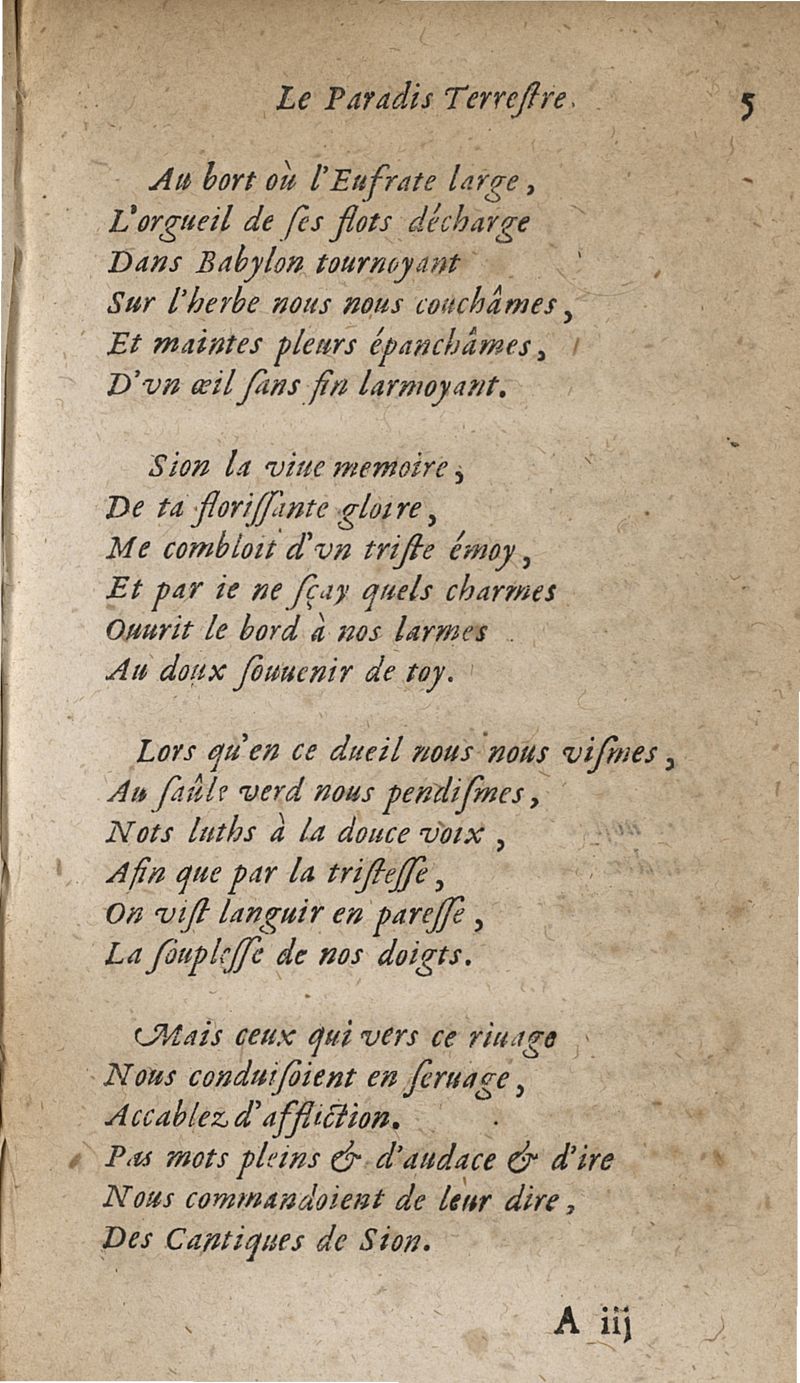 Le Paradis Terreſtre. 5
Au bort où l'Eufrate large,
L'orgueil de ſes flots décharge
Dans Babylon tournoyant
Sur l'herbe nous nous couchâmes,
Et maintes pleurs épanchâmes,
D'vn œil ſans fin larmoyant.
Sion la viue memoire,
De ta floriſſante gloire,
Me combloit d'vn triſte émoy,
Et par ie ne ſçay quels charmes
Ouurit le bord à nos larmes
Au doux ſouuenir de toy.
Lors qu'en ce dueil nous nous viſmes,
Au ſaûle verd nous pendiſmes,
Nots luths à la douce voix,
Afin que par la triſteſſe,
On viſt languir en pareſſe,
La ſoupleſſe de nos doigts.
Mais ceux qui vers ce riuage
Nous conduiſoient en ſeruage,
Accablez d'affliction.
Pas mots pleins & d'audace & d'ire
Nous commandoient de leur dire,
Des Cantiques de Sion.
A iij